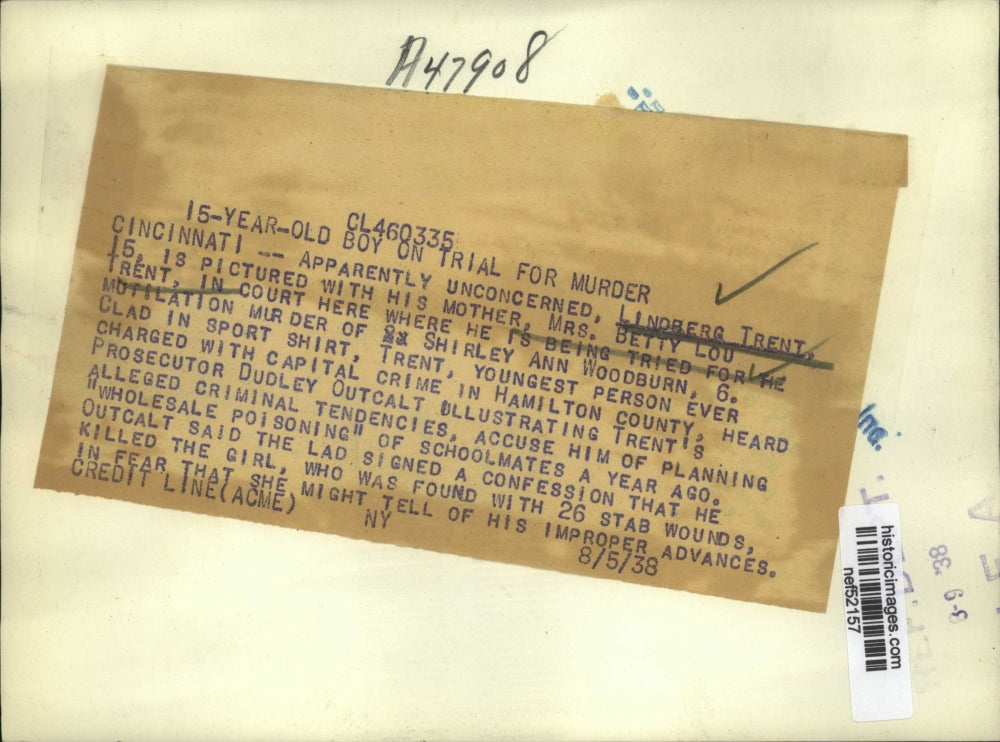 A47908
CL460335
15-YEAR-OLD BOY ON TRIAL FOR MURDER
CINCINNATI -- APPARENTLY UNCONCERNED, LINDBERG TRENT,
15, IS PICTURED WITH HIS MOTHER, MRS. BETTY LOU
TRENT, IN COURT HERE WHERE HE IS BEING TRIED FOR HE
MUTILATION MURDER OF SHIRLEY ANN WOODBURN, 6.
CLAD IN SPORT SHIRT, TRENT, YOUNGEST PERSON EVER
CHARGED WITH CAPITAL CRIME IN HAMILTON COUNTY, HEARD
PROSECUTOR DUDLEY OUTCALT ILLUSTRATING TRENT'S
ALLEGED CRIMINAL TENDENCIES, ACCUSE HIM OF PLANNING
"WHOLESALE POISONING" OF SCHOOLMATES A YEAR AGO.
OUTCALT SAID THE LAD SIGNED A CONFESSION THAT HE
KILLED THE GIRL, WHO WAS FOUND WITH 26 STAB WOUNDS,
IN FEAR THAT SHE MIGHT TELL OF HIS IMPROPER ADVANCES.
CREDIT LINE(ACME) NY 8/5/38
Inc.
historicimages.com
nef52157